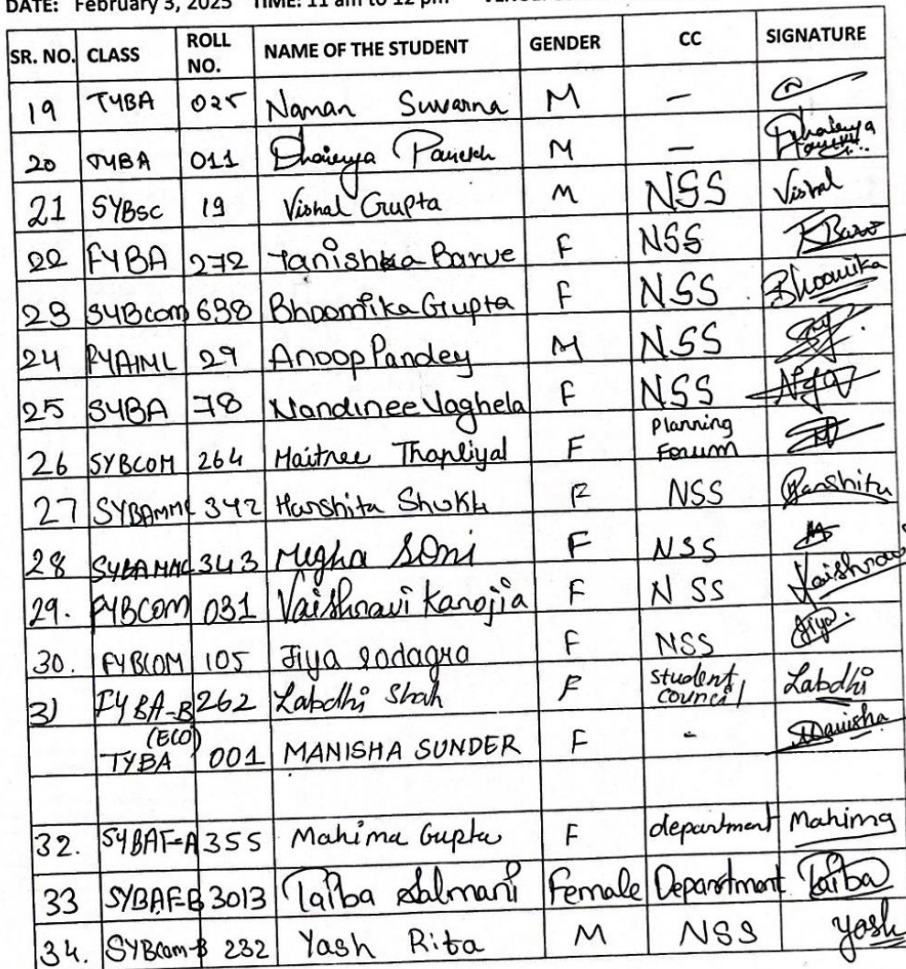 DATE: February 3, 2025 TIME: 11 am to 12 pm
SR. NO. CLASS ROLL NO. NAME OF THE STUDENT GENDER CC SIGNATURE
19 TYBA 025 Naman Suvarna M –
20 TYBA 011 Dhairya Parekh M –
21 SYBsc 19 Vishal Gupta M NSS Vishal
22 FYBA 272 Tanishka Barve F NSS
23 SYBcom 698 Bhoomika Gupta F NSS Bhoomika
24 FYAIML 29 Anoop Pandey M NSS
25 SYBA 78 Nandinee Vaghela F NSS
26 SYBCOM 264 Maitree Thapliyal F Planning Forum
27 SYBAMMC 342 Harshita Shukla F NSS Harshita
28 SYBAMMC 343 Megha Soni F NSS
29. FYBCOM 031 Vaishnavi Kanojia F NSS
30. FYBCOM 105 Jiya sodagra F NSS Jiya.
31 FYBA-B 262 Labdhi Shah F Student council Labdhi
(ECO) TYBA 001 MANISHA SUNDER F - Manisha
32. SYBAF-A 355 Mahima Gupta F department Mahima
33 SYBAF-B 3013 Taiba Salmani Female Department Taiba
34. SYBcom-B 232 Yash Rita M NSS Yash